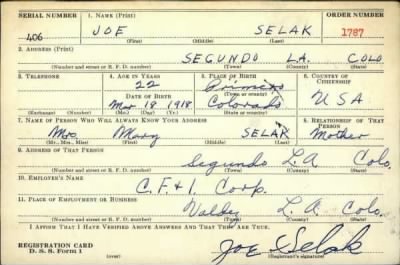 SERIAL NUMBER 1. NAME (Print) ORDER NUMBER
406 JOE SELAK 1787
(First) (Middle) (Last)
2. ADDRESS (Print)
SEGUNDO L.A. COLO
(Number and street or R. F. D. number) (Town) (County) (State)
3. TELEPHONE 4. AGE IN YEARS 5. PLACE OF BIRTH 6. COUNTRY OF CITIZENSHIP
22 Primero
DATE OF BIRTH (Town or county)
Mar 18 1918 Colorado USA
(Exchange) (Number) (Mo.) (Day) (Yr.) (State or country)
7. NAME OF PERSON WHO WILL ALWAYS KNOW YOUR ADDRESS 8. RELATIONSHIP OF THAT PERSON
Mrs. Mary SELAK Mother
(Mr., Mrs., Miss) (First) (Middle) (Last)
9. ADDRESS OF THAT PERSON
Segundo L.A. Colo.
(Number and street or R. F. D. number) (Town) (County) (State)
10. EMPLOYER'S NAME
C. F. & I. Corp.
11. PLACE OF EMPLOYMENT OR BUSINESS
Valdez L.A. Colo.
(Number and street or R. F. D. number) (Town) (County) (State)
I AFFIRM THAT I HAVE VERIFIED ABOVE ANSWERS AND THAT THEY ARE TRUE.
REGISTRATION CARD Joe Selak
D. S. S. Form 1 (over) (Registrant's signature)